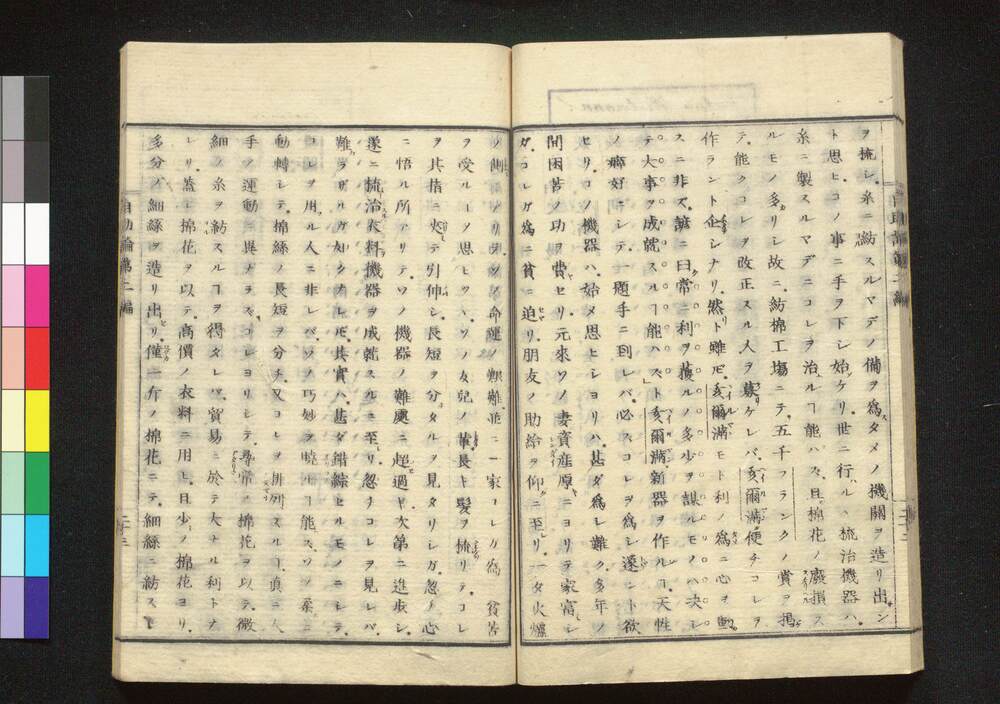 ヲ梳シ、糸ニ紡スルマデノ備ヲ爲スタメノ機關ヲ造リ出サン
ト思ヒ、コノ事ニ手ヲ下シ始ケリ、世ニ行ハルヽ梳治機器ハ、
糸ニ製スルマデニコレヲ治ルヿ能ハズ、且棉花ノ廢損ス
ルモノ多リシ故ニ、紡棉工塲ニテ、五千フランクノ賞ヲ掲
テ、能クコレヲ改正スル人ヲ募ケレバ、亥爾滿便チコレヲ
作ラント企シナリ、然リト雖ドモ、亥爾滿モト利ノ爲ニ心ヲ動
スニ非ズ、諺ニ曰、常ニ利ヲ獲ルノ多少ヲ謀ルモノハ、决シ
テ大事ヲ成就スルヿ能ハズト、亥爾滿新器ヲ作ルハ、天性
ノ癖好ニシテ、一題手ニ到レバ、必ズコレヲ爲シ遂ント欲
セリ、コノ機器ハ、始メ思ヒシヨリハ、甚ダ爲シ難ク、多年ノ
間困苦ノ功ヲ費セリ、元來ソノ妻資産ニヨリテ家富シ
ガ、コレガ爲ニ貧ニ迫リ、朋友ノ助給ヲ仰ニ至リ、一夕火爐
ノ側ニアリテ、ソノ命運ノ艱難、並ニ一家コレガ爲ニ貧苦
ヲ受ルヿヲ思ヒ、ソノ女兒ノ長キ髪ヲ梳リテ、コレ
ヲ其指ニ夾テ引伸シ、長短ヲ分タルヲ見タリシガ、忽チ心
ニ悟ル所アリテ、ソノ機器ノ難處ニ超過セ、次第ニ進歩シ、
遂ニ梳治衣料機器ヲ成就スルニ至リ、忽チコレヲ見レバ、
難ラザルガ如クナレドモ、其實ハ甚ダ錯綜セルモノニシテ、
コレヲ用ル人ニ非レバ、ソノ巧妙ヲ曉ルヿ能ハズ、ソノ柔ニ
動轉シテ、棉絲ノ長短ヲ分チ、又コレヲ排列スルヿ、眞ニ人
手ノ運動ニ異ナラズ、コレヨリシテ、尋常ノ棉花ヲ以テ、微
細ノ糸ヲ紡スルヿヲ得タレバ、貿易ニ於テ大ナル利トナ
レリ、蓋シ棉花ヲ以テ、高價ノ衣料ニ用ヒ、且少ノ棉花ヨリ、
多分ノ細絲ヲ造リ出セリ、僅一斤ノ棉花ニテ、細絲ニ紡スレ
自助論第二編